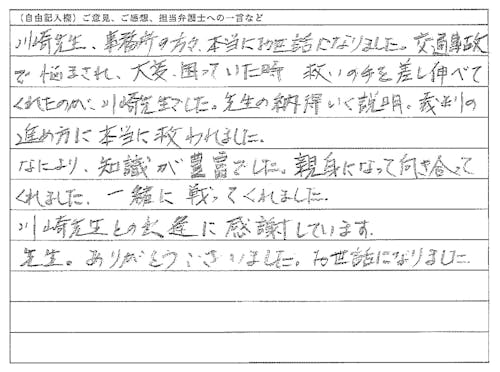 （自由記入欄）ご意見、ご感想、担当弁護士への一言など
川崎先生、事務所の方々、本当にお世話になりました。交通事故
で悩まされ、大変、困っていた時 救いの手を差し伸べて
くれたのが、川崎先生でした。先生の納得いく説明。裁判の
進め方に本当に救われました。
なにより、知識が豊富でした。親身になって向き合って
くれました。一緒に戦ってくれました。
川崎先生との出逢に感謝しています。
先生。ありがとうございました。お世話になりました